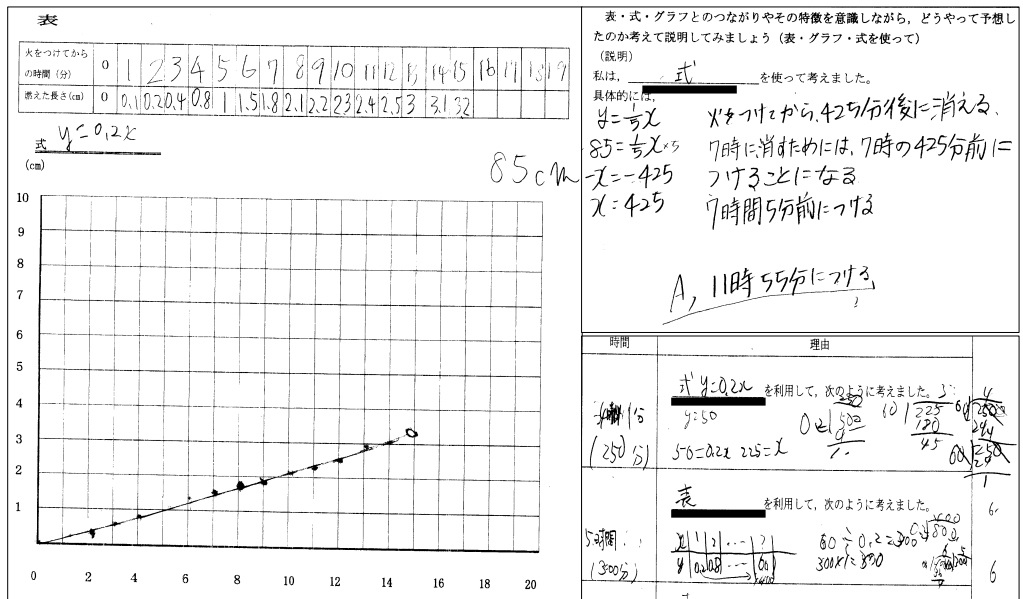 表
火をつけてからの時間(分) 0 1 2 3 4 5 6 7 8 9 10 11 12 13 14 15 16 17 18 19
燃えた長さ(cm) 0 0.1 0.2 0.4 0.8 1 1.5 1.8 2.1 2.2 2.3 2.4 2.5 3 3.1 3.2
式 y=0.2x
(cm)
85cm
10
9
8
7
6
5
4
3
2
1
0 2 4 6 8 10 12 14 16 18 20
表・式・グラフとのつながりやその特徴を意識しながら,どうやって予想し
たのか考えて説明してみましょう(表・グラフ・式を使って)
(説明)
私は, 式 を使って考えました。
具体的には,
y=1/5x 火をつけてから、425分後に消える、
85=1/5x ×5 7時に消すためには、7時の425分前に
-x=-425 つけることになる
x=425 7時間5分前につける
A, 11時55分につける,
時間 理由
式 y=0.2x を利用して,次のように考えました。
y=50
(250分) 50=0.2x 225=x
表 を利用して,次のように考えました。
5時間
(300分)
x 1 2 … ?
60÷0.2=300
300×1=300
6